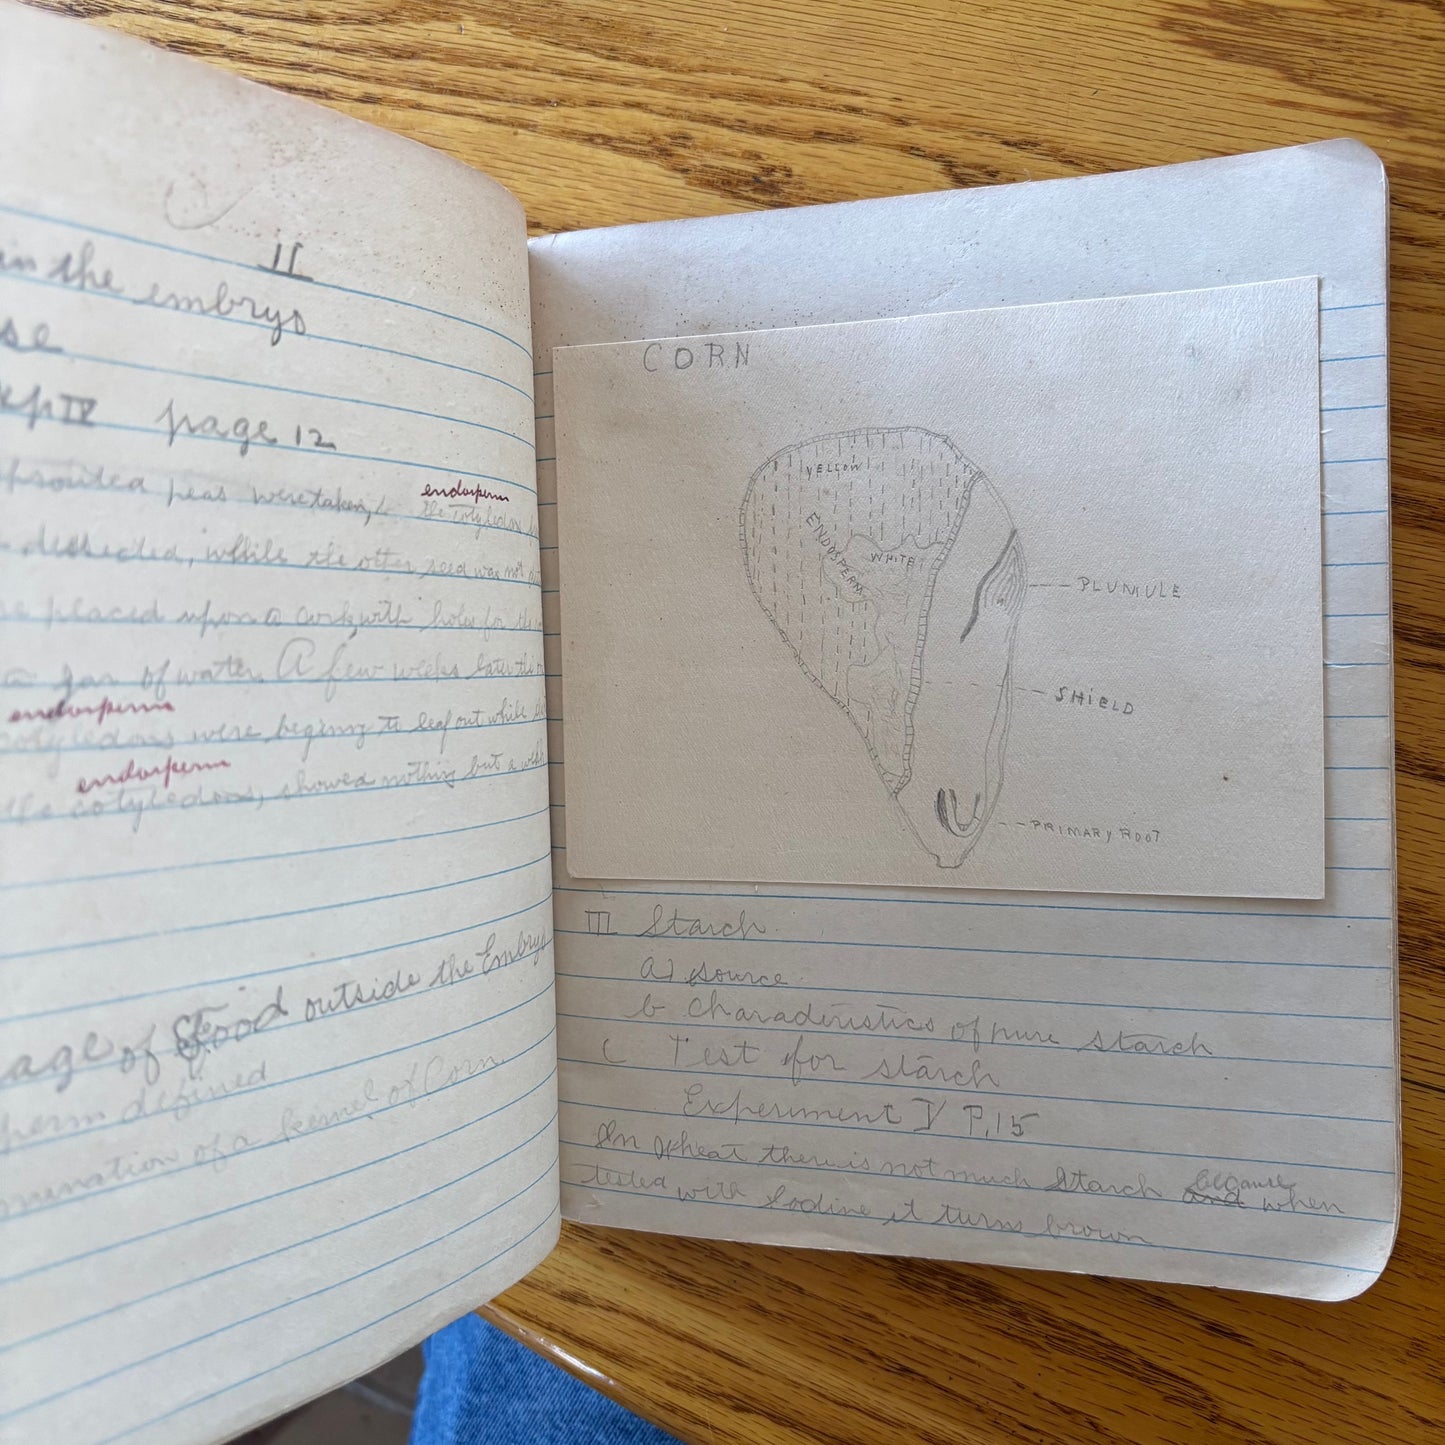 II
in the embryo
se
xp IV page 12
peas were taken, endosperm the cotyledons
dessected, while the other seed was not
placed upon a cork with holes for the
a jar of water. A few weeks later the
endosperm
cotyledons were begining to leaf out while
endosperm
the cotyledons, showed nothing but a
age of Food outside the Embryo
perm defined
mination of a kernel of Corn
CORN
YELLOW
ENDOSPERM
WHITE
PLUMULE
SHIELD
PRIMARY ROOT
III Starch
a) source
b Characteristics of pure starch
C Test for starch
Experiment V P.15
In Wheat there is not much Starch because and when
tested with Iodine it turns brown